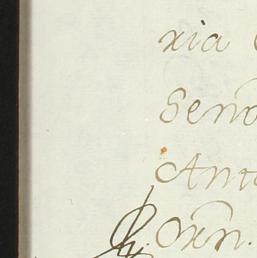 xia
Seño
Anto
Oxn.